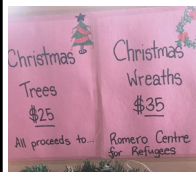 Christmas
Trees
$25
All proceeds to...
Christmas
Wreaths
$35
Romero Centre
for Refugees